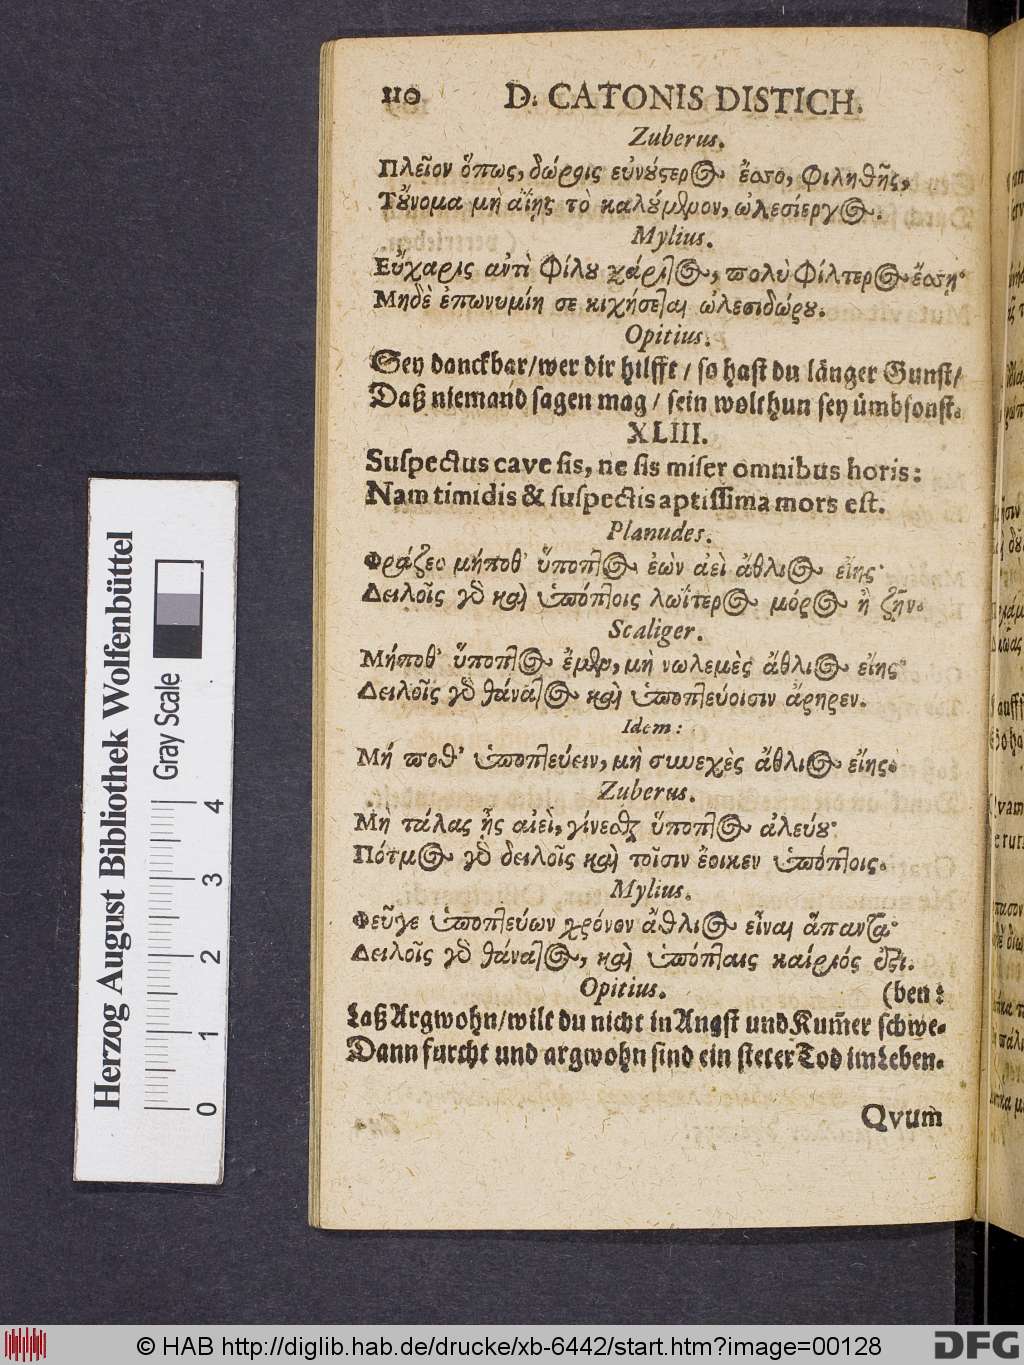 110 D. CATONIS DISTICH.
Zuberus.
Πλεῖον ὅπως, δώροις εὐνούςερος ἔσσο, φιληθῇς,
Τοὔνομα μὴ αἴῃς τὸ καλούμενον, ὠλεσίεργος.
Mylius.
Εὔχαρις ἀντὶ φίλου χάριτος, πολὺ φίλτερος ἔσσῃ·
Μηδὲ ἐπωνυμίη σε κιχήσεται ὠλεσιδώρου.
Opitius.
Sey danckbar/wer dir hilfft / so hast du länger Gunst/
Daß niemand sagen mag / sein wolthun sey ümbsonst.
XLIII.
Suspectus cave sis, ne sis miser omnibus horis:
Nam timidis & suspectis aptissima mors est.
Planudes.
Φράζεο μήποθ' ὕποπτος ἐὼν ἀεὶ ἄθλιος εἴης·
Δειλοῖς γὰρ καὶ ὑπόπτοις λωΐτερος μόρος ἢ ζῆν.
Scaliger.
Μήποθ' ὕποπτος ἔμεν, μὴ νωλεμὲς ἄθλιος εἴης·
Δειλοῖς γὰρ θάνατος καὶ ὑποπτεύοισιν ἄρηρεν.
Idem:
Μή ποθ' ὑποπτεύειν, μὴ συνεχὲς ἄθλιος εἴης.
Zuberus.
Μὴ τάλας ᾖς αἰεὶ, γίνεσθαι ὕποπτος ἀλεύου·
Πότμος γὰρ δειλοῖς καὶ τοῖσιν ἔοικεν ὑπόπτοις.
Mylius.
Φεῦγε ὑποπτεύων χρόνον ἄθλιος εἶναι ἅπαντα·
Δειλοῖς γὰρ θάνατος, καὶ ὑπόπταις καίριός ἐστι.
Opitius. (ben:
Laß Argwohn/wilt du nicht in Angst und Kum̄er schwe-
Dann furcht und argwohn sind ein steter Tod im Leben.
Qvum
Herzog August Bibliothek Wolfenbüttel
Gray Scale
0 1 2 3 4
© HAB http://diglib.hab.de/drucke/xb-6442/start.htm?image=00128
DFG